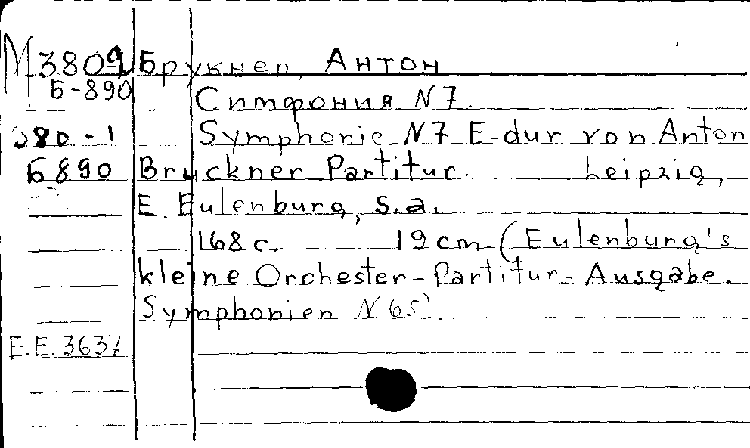 М 3809 Брукнер, Антон
Б-890
Симфония N7.
380-1 Symphonie N7 E-dur von Anton
Б890 Bruckner. Partitur. Leipzig,
E. Eulenburg, s.a.
168 с. 19 cm (Eulenburg's
kleine Orchester-Partitur-Ausgabe.
Symphonien N 65).
E.E. 3637